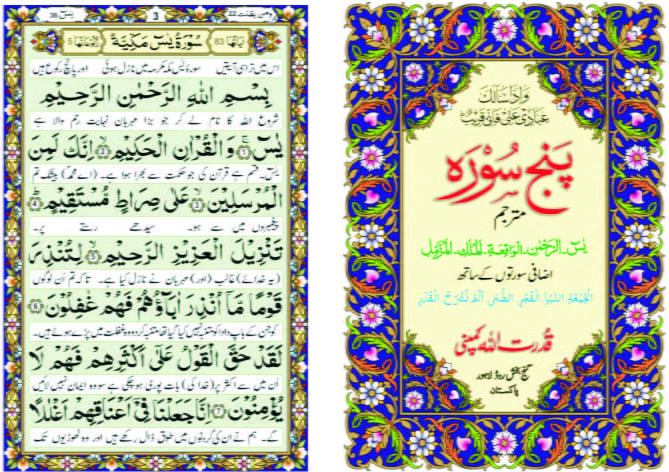 ومن يقنت 22
3
يٰسٓ 36
اٰيَاتُهَا 83
سُوْرَةُ يٰسٓ مَكِّيَّةٌ
رُكُوْعَاتُهَا 5
اس میں تراسی آیتیں سورۂ یٰس مکہ مکرمہ میں نازل ہوئی اور پانچ رکوع ہیں
بِسْمِ اللهِ الرَّحْمٰنِ الرَّحِيْمِ
شروع اللہ کا نام لے کر جو بڑا مہربان نہایت رحم والا ہے
يٰسٓ ۝١ وَالْقُرْاٰنِ الْحَكِيْمِ ۝٢ اِنَّكَ لَمِنَ
یٰس۔ قسم ہے قرآن کی جو حکمت سے بھرا ہوا ہے۔ (اے محمدؐ) بیشک تم
الْمُرْسَلِيْنَ ۝٣ عَلٰى صِرَاطٍ مُّسْتَقِيْمٍ ۝٤
پیغمبروں میں سے ہو۔ سیدھے رستے پر۔
تَنْزِيْلَ الْعَزِيْزِ الرَّحِيْمِ ۝٥ لِتُنْذِرَ
(یہ خدائے) غالب (اور) مہربان نے نازل کیا ہے۔ تاکہ تم ان لوگوں
قَوْمًا مَّاۤ اُنْذِرَ اٰبَآؤُهُمْ فَهُمْ غٰفِلُوْنَ ۝٦
کو جن کے باپ دادا کو متنبہ نہیں کیا گیا تھا متنبہ کر دو وہ غفلت میں پڑے ہوئے ہیں۔
لَقَدْ حَقَّ الْقَوْلُ عَلٰۤى اَكْثَرِهِمْ فَهُمْ لَا
ان میں سے اکثر پر (خدا کی) بات پوری ہو چکی ہے سو وہ ایمان نہیں لائیں
يُؤْمِنُوْنَ ۝٧ اِنَّا جَعَلْنَا فِيْۤ اَعْنَاقِهِمْ اَغْلٰلًا
گے۔ ہم نے ان کی گردنوں میں طوق ڈال رکھے ہیں اور وہ ٹھوڑیوں تک
وَاِذَا سَاَلَكَ
عِبَادِيْ عَنِّيْ فَاِنِّيْ قَرِيْبٌ
پَنج سُوْرَہ
مترجم
يٰسٓ، الرَّحْمٰن، الْوَاقِعَة، الْمُلْك، الْمُزَّمِّل
اضافی سورتوں کے ساتھ
الْجُمُعَة النَّبَا الْفَجْر الضُّحٰى اَلَمْ نَشْرَحْ الْقَدْر
قدرت اللہ کمپنی
گنج بخش روڈ لاہور
پاکستان